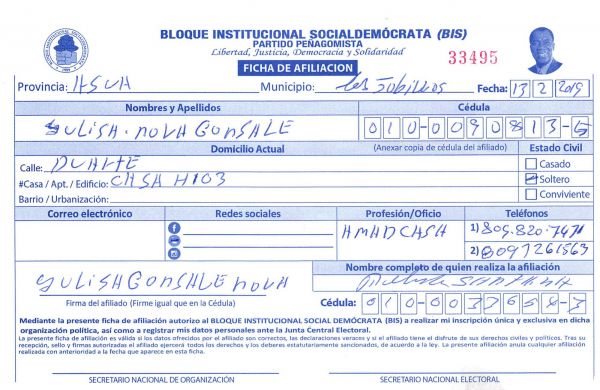 BLOQUE INSTITUCIONAL SOCIALDEMÓCRATA (BIS)
PARTIDO PEÑAGOMISTA
Libertad, Justicia, Democracia y Solidaridad
33495
FICHA DE AFILIACION
Provincia: ASUA Municipio: Las Jobillos Fecha: 13 2 2019
Nombres y Apellidos Cédula
YULISA. NOVA GONSALE 010-0090813-5
Domicilio Actual (Anexar copia de cédula del afiliado) Estado Civil
Calle: DUARTE Casado
#Casa / Apt. / Edificio: CASA H103 Soltero
Barrio / Urbanización: Conviviente
Correo electrónico Redes sociales Profesión/Oficio Teléfonos
AMADCASA 1) 809.820.7471
2) 8097261563
YULISA GONSALE NOVA Nombre completo de quien realiza la afiliación
SANTANA
Firma del afiliado (Firme igual que en la Cédula) Cédula: 010-0037658-3
Mediante la presente ficha de afiliación autorizo al BLOQUE INSTITUCIONAL SOCIAL DEMÓCRATA (BIS) a realizar mi inscripción única y exclusiva en dicha
organización política, así como a registrar mis datos personales ante la Junta Central Electoral.
La presente ficha de afiliación es válida si los datos ofrecidos por el afiliado son correctos, las declaraciones veraces y si el afiliado tiene el disfrute de sus derechos civiles y políticos. Tras su
recepción, sello y firmas autorizadas el afiliado ejercerá todos los derechos y los deberes estatutariamente sancionados, de acuerdo a la ley. La presente afiliación anula cualquier afiliación
realizada con anterioridad a la fecha que aparece en esta ficha.
SECRETARIO NACIONAL DE ORGANIZACIÓN SECRETARIO NACIONAL ELECTORAL